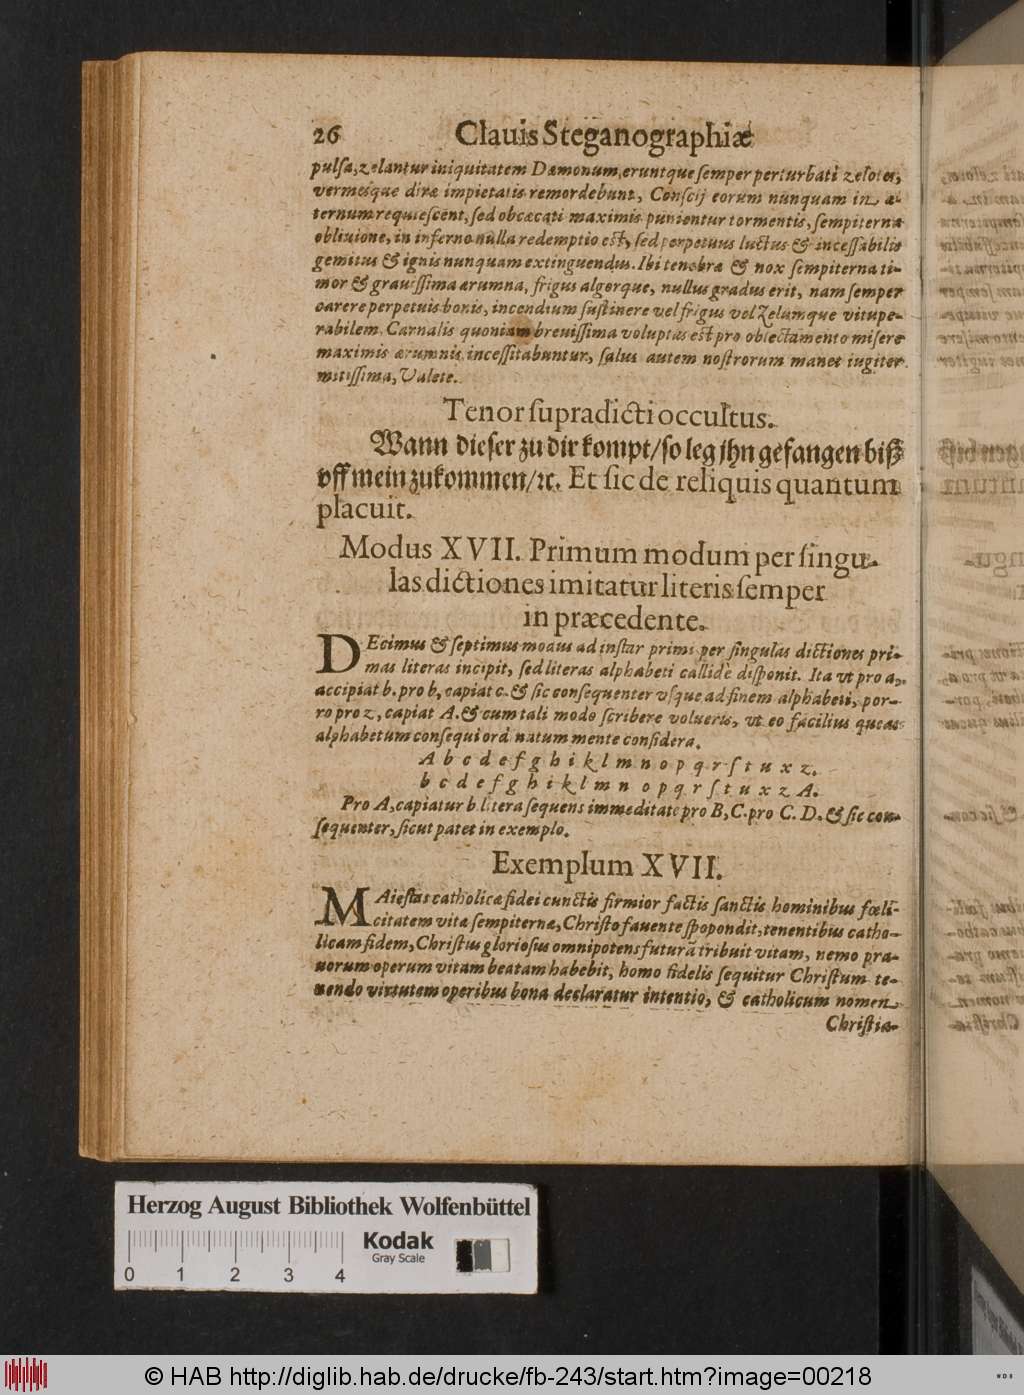 26 Clauis Steganographiæ
pulsa, zelantur iniquitatem Dæmonum, eruntque semper perturbati zelotes,
vermesque diræ impietatis remordebunt, Conscij eorum nunquam in æ-
ternum requiescent, sed obcæcati maximis punientur tormentis, sempiterna
obliuione, in inferno nulla redemptio est, sed perpetuus luctus & incessabilis
gemitus & ignis nunquam extinguendus. Ibi tenebræ & nox sempiterna ti-
mor & grauissima ærumna, frigus algorque, nullus gradus erit, nam semper
carere perpetuis bonis, incendium sustinere vel frigus vel Zelumque vitupe-
rabilem. Carnalis quoniam breuissima voluptas est pro oblectamento misere
maximis ærumnis incessitabuntur, salus autem nostrorum manet iugiter
mitissima, Valete.
Tenor supradicti occultus.
Wann dieser zu dir kompt/ so leg jhn gefangen biß
vff mein zukommen/ ꝛc. Et sic de reliquis quantum
placuit.
Modus XVII. Primum modum per singu-
las dictiones imitatur literis semper
in præcedente.
DEcimus & septimus modus ad instar primi per singulas dictiones pri-
mas literas incipit, sed literas alphabeti callidè disponit. Ita vt pro a,
accipiat b. pro b, capiat c. & sic consequenter vsque ad finem alphabeti, por-
ro pro z, capiat A. & cum tali modo scribere volueris, vt eo facilius queas
alphabetum consequi ordinatum mente considera.
A b c d e f g h i k l m n o p q r s t u x z.
b c d e f g h i k l m n o p q r s t u x z A.
Pro A, capiatur b litera sequens immeditate pro B, C. pro C. D. & sic con-
sequenter, sicut patet in exemplo.
Exemplum XVII.
MAiestas catholicæ fidei cunctis firmior factis sanctis hominibus fœli-
citatem vitæ sempiternæ, Christo fauente spopondit, tenentibus catho-
licam fidem, Christus gloriosus omnipotens futurã tribuit vitam, nemo pra-
uorum operum vitam beatam habebit, homo fidelis sequitur Christum te-
nendo virtutem operibus bona declaratur intentio, & catholicum nomen
Christia-
Herzog August Bibliothek Wolfenbüttel
Kodak
Gray Scale
0 1 2 3 4
© HAB http://diglib.hab.de/drucke/fb-243/start.htm?image=00218